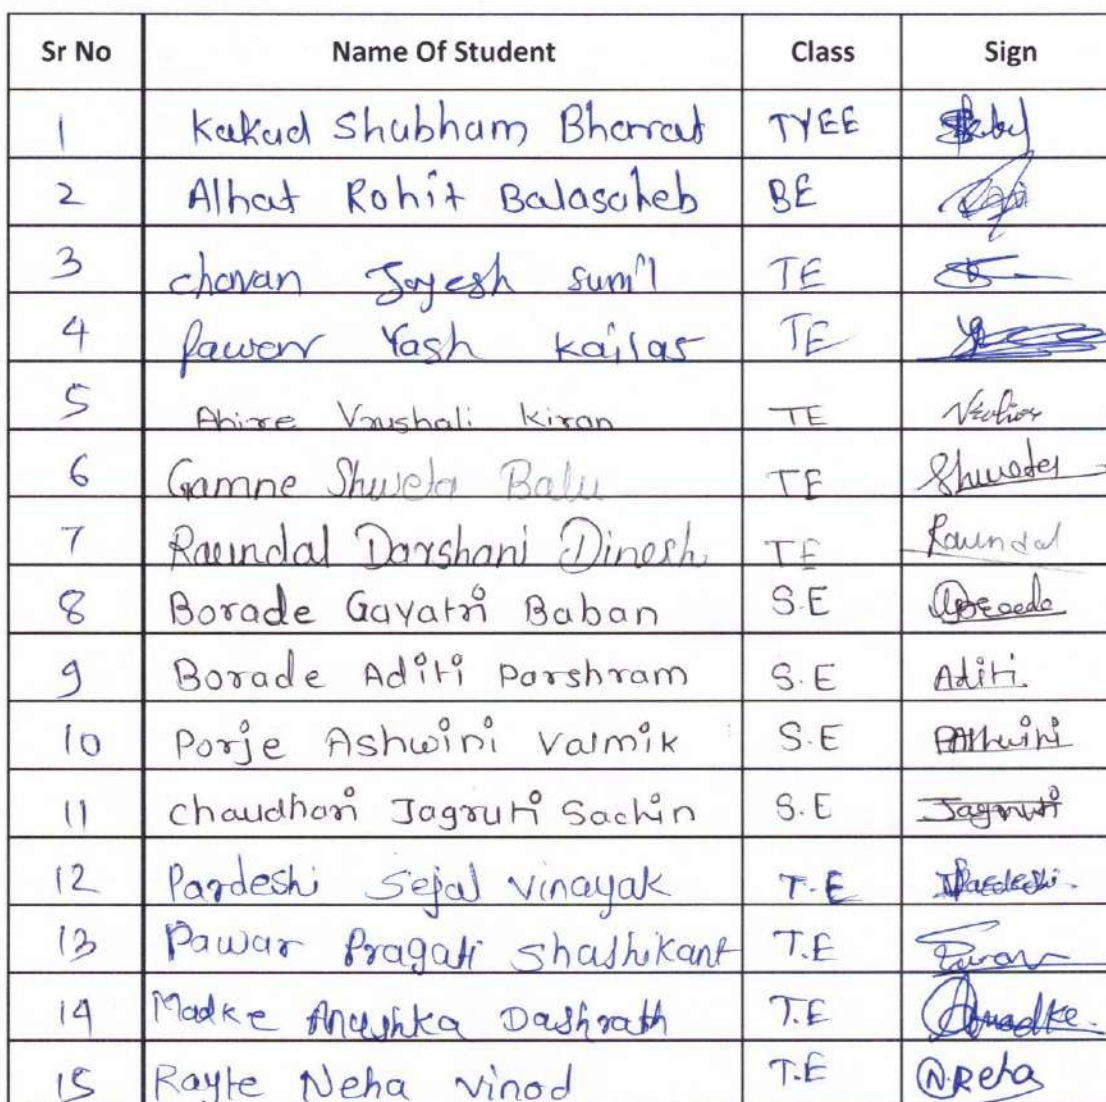 Sr No Name Of Student Class Sign
1 Kakad Shubham Bharat TYEE
2 Alhat Rohit Balasaheb BE
3 chavan Jayesh sunil TE
4 Pawar Yash Kailas TE
5 Ahire Vrushali Kiran TE
6 Gamne Shweta Balu TE Shweta
7 Raundal Darshani Dinesh TE Raundal
8 Borade Gayatri Baban S.E
9 Borade Aditi Parshram S.E Aditi
10 Porje Ashwini Valmik S.E PAshwini
11 chaudhari Jagruti Sachin S.E Jagruti
12 Pardeshi Sejal vinayak T.E Pardeshi
13 Pawar Pragati Shashikant T.E
14 Madke Anushka Dashrath T.E
15 Rayte Neha Vinod T.E N.Reha